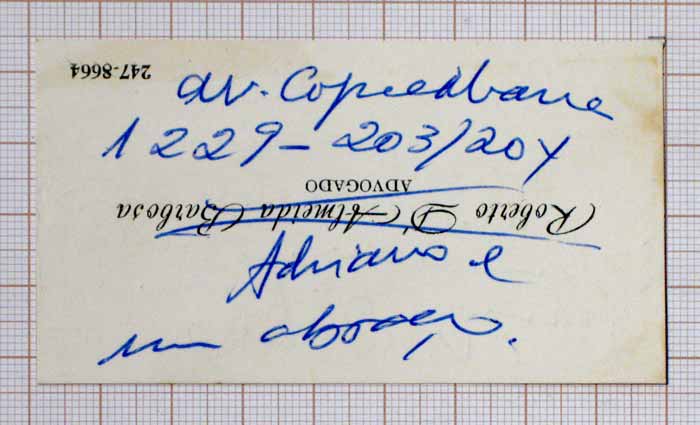 247-8664
av. Copacabana
1229 - 203/204
ADVOGADO
Roberto D'Almeida Barbosa
Adriano e
um abraço.